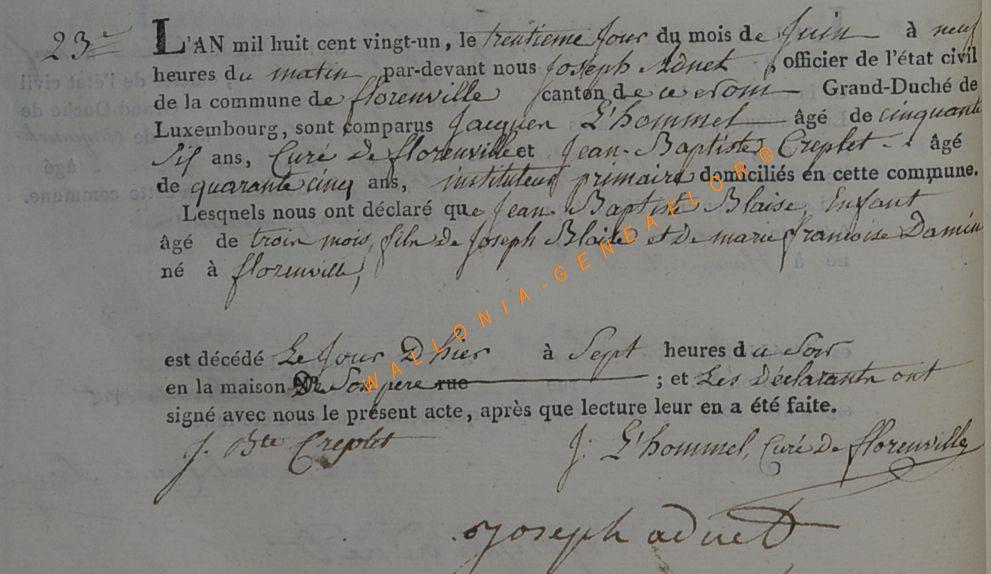 23e L'AN mil huit cent vingt-un, le trentieme Jour du mois de Juin à neuf
heures du matin par-devant nous Joseph Adnet officier de l'état civil
de la commune de florenville canton de ce nom Grand-Duché de
Luxembourg, sont comparus Jacques L'hommel âgé de cinquante
Six ans, Curé de florenville et Jean-Baptiste Creplet âgé
de quarante cinq ans, instituteur primaire domiciliés en cette commune.
Lesquels nous ont déclaré que Jean-Baptiste Blaise, Enfant
âgé de trois mois, fils de Joseph Blaise et de marie françoise Damien
né à florenville,
est décédé Le Jour D'hier à Sept heures du Soir
en la maison De Son pere rue ; et Les Déclarants ont
signé avec nous le présent acte, après que lecture leur en a été faite.
J. Bte Creplet J. L'hommel, Curé De florenville
Joseph adnet
WALLONIA-GENEALOR®